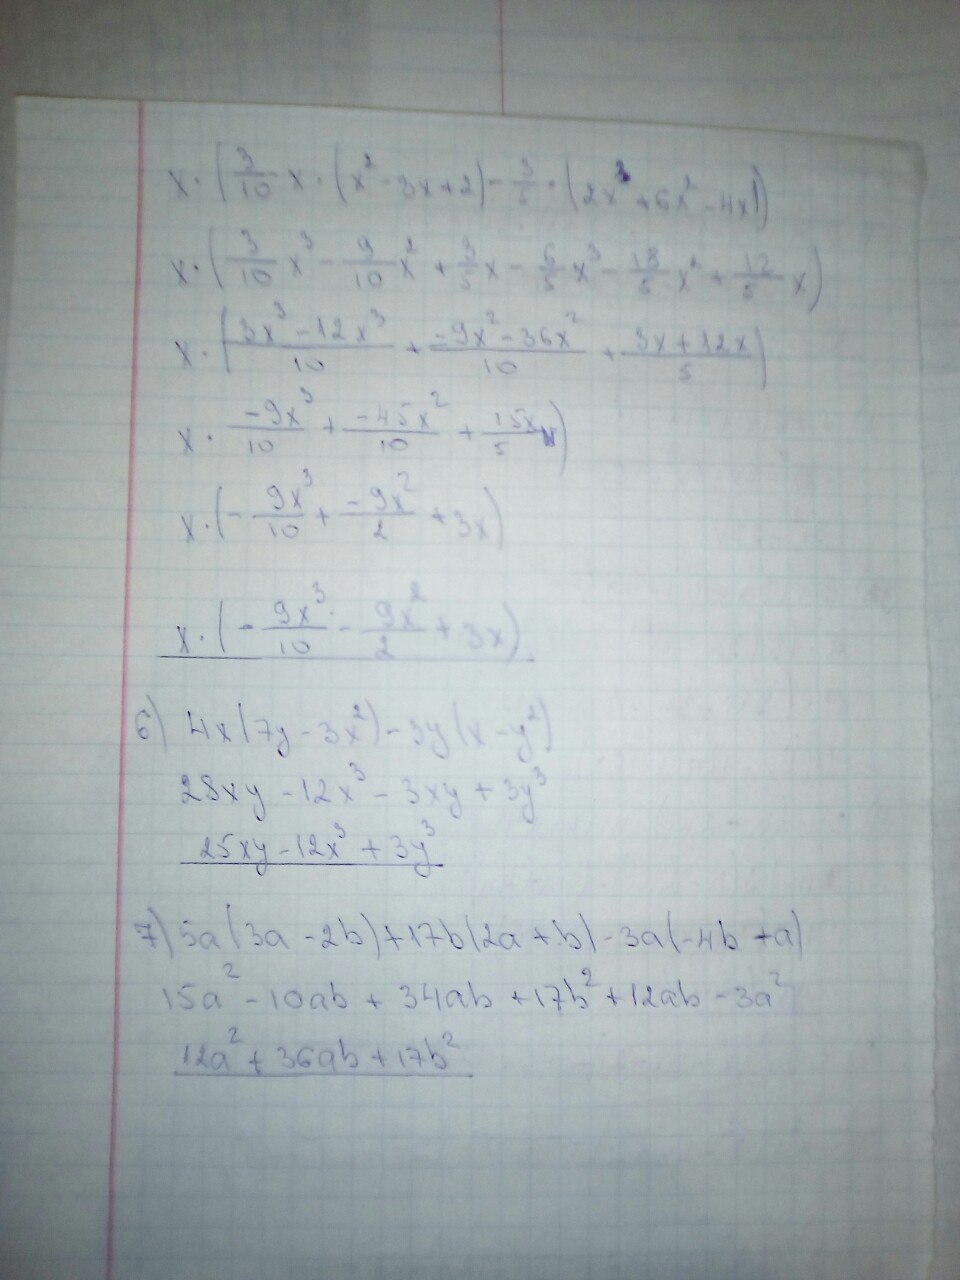 x·(3/10 x·(x² - 3x + 2) - 3/5·(2x³ + 6x² - 4x))
x·(3/10 x³ - 9/10 x² + 3/5 x - 6/5 x³ - 18/5 x² + 12/5 x)
x·((3x³ - 12x³)/10 + (-9x² - 36x²)/10 + (3x + 12x)/5)
x· -9x³/10 + -45x²/10 + 15x/5)
x·(- 9x³/10 + -9x²/2 + 3x)
x·(- 9x³/10 - 9x²/2 + 3x)
6) 4x(7y - 3x²) - 3y(x - y²)
28xy - 12x³ - 3xy + 3y³
25xy - 12x³ + 3y³
7) 5a(3a - 2b) + 17b(2a + b) - 3a(-4b + a)
15a² - 10ab + 34ab + 17b² + 12ab - 3a²
12a² + 36ab + 17b²